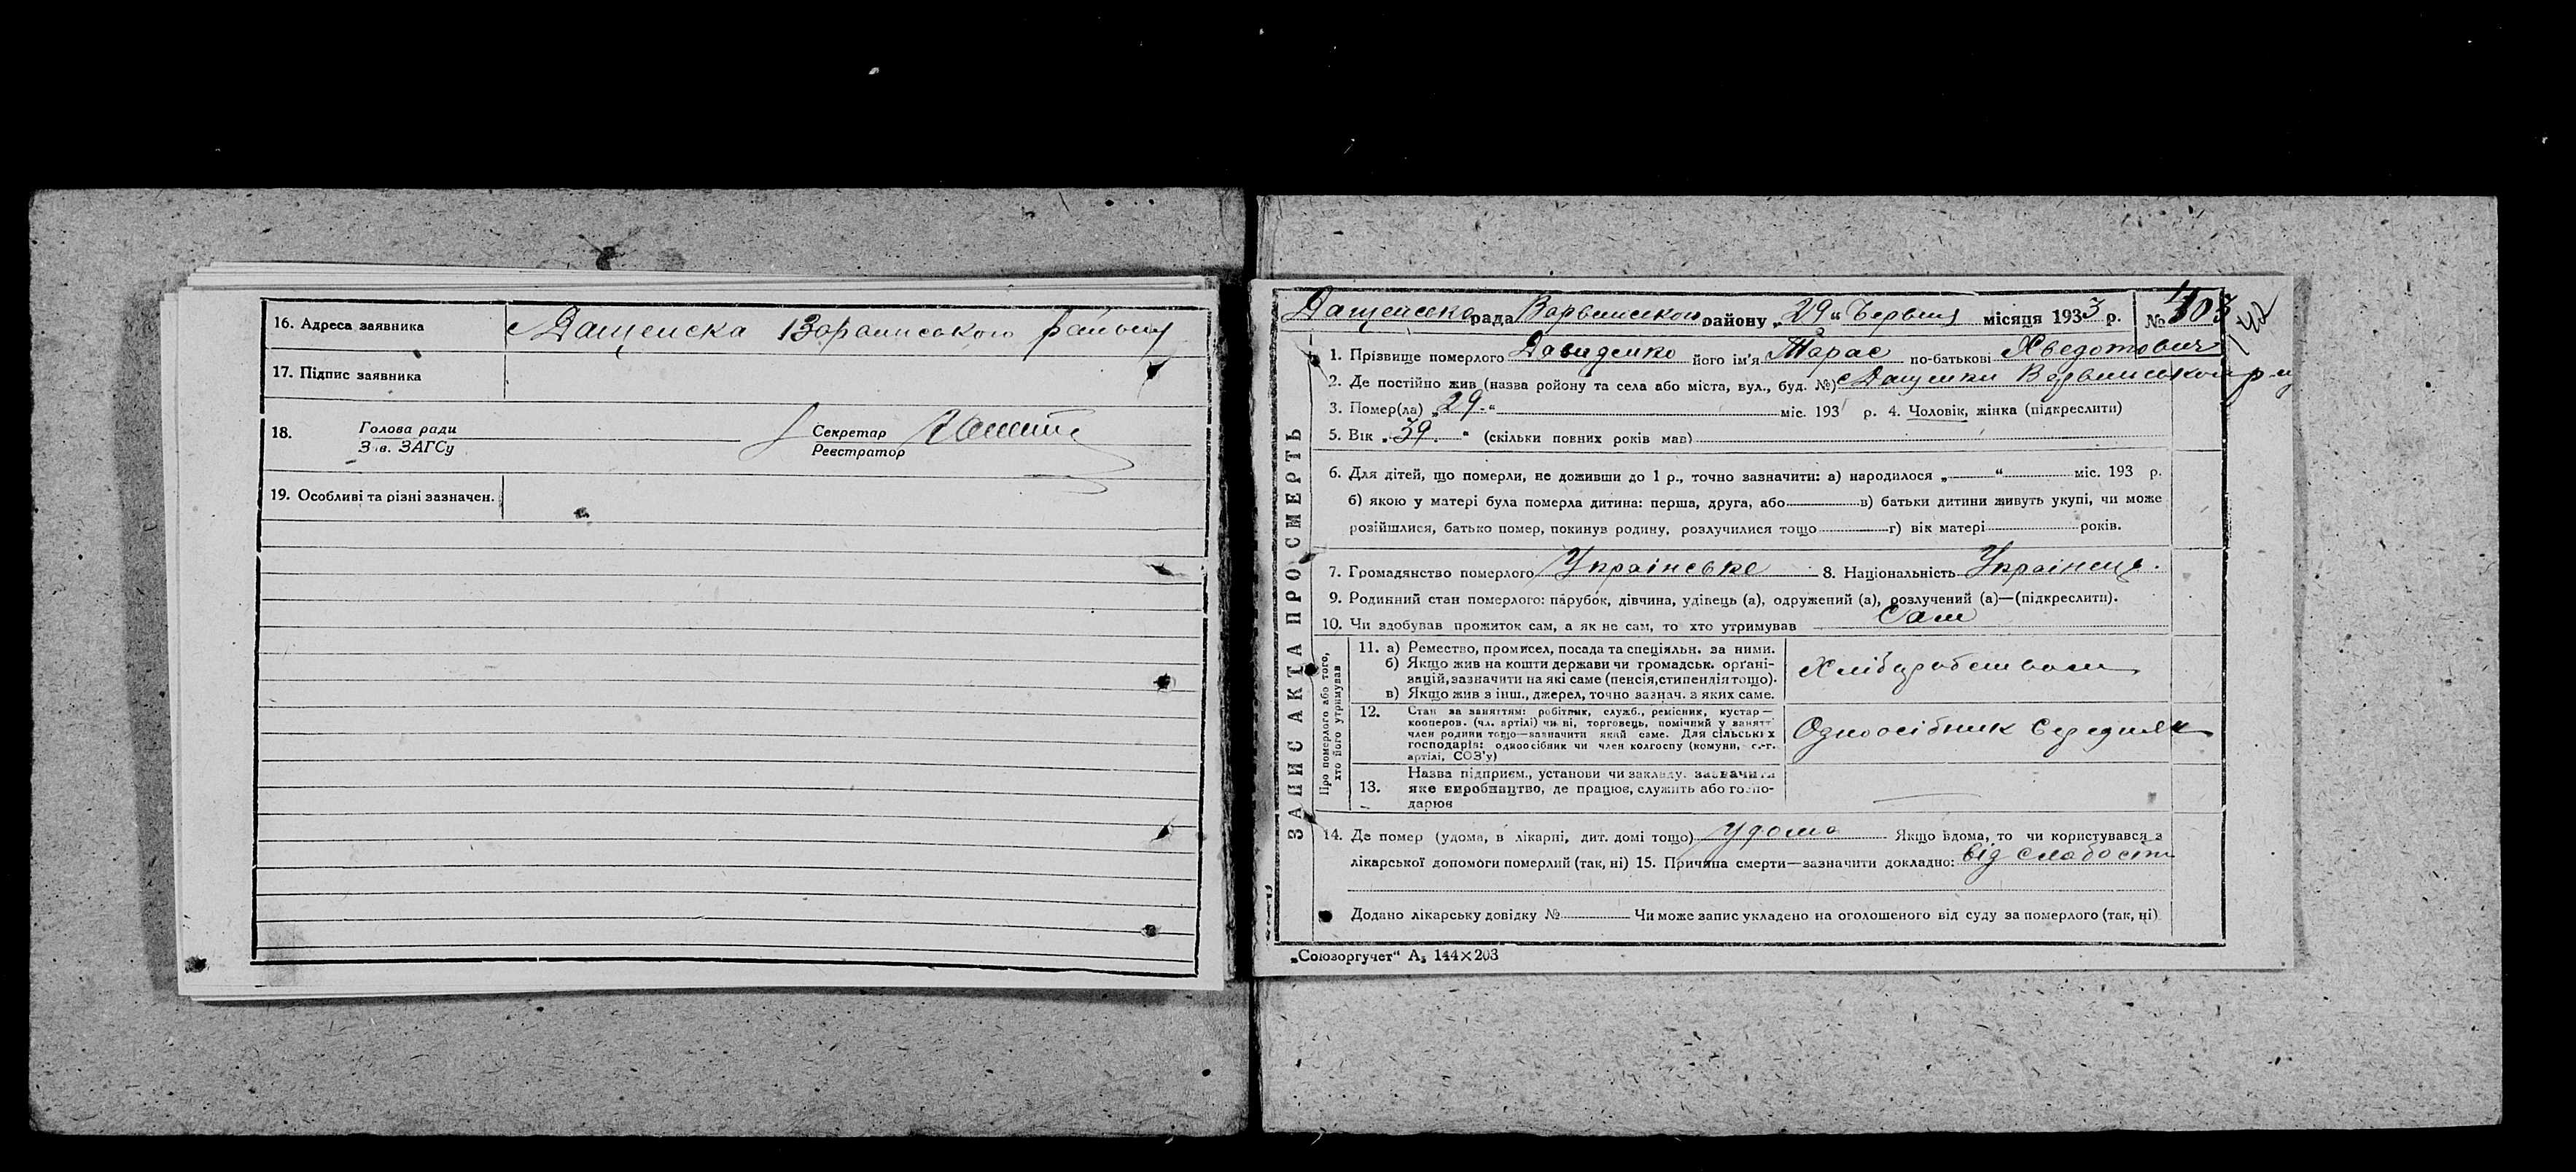 16. Адреса заявника с Дащенска Варвинського району
17. Підпис заявника
18. Голова ради Секретар
Зав. ЗАГСу Реєстратор
19. Особливі та різні зазначен.
Дащенська рада Варвинського району „29“ Червня місяця 1933 р. № 103
142
1. Прізвище померлого Давиденко його ім'я Тарас по-батькові Хведотович
2. Де постійно жив (назва району та села або міста, вул., буд. №) с Дащенки Варвинського р-ну
3. Помер(ла) „29.“ міс. 193 р. 4. Чоловік, жінка (підкреслити)
5. Вік „39.“ (скільки повних років мав)
6. Для дітей, що померли, не доживши до 1 р., точно зазначити: а) народилося „ “ міс. 193 р.
б) якою у матері була померла дитина: перша, друга, або в) батьки дитини живуть укупі, чи може
розійшлися, батько помер, покинув родину, розлучилися тощо г) вік матері років.
7. Громадянство померлого Українське 8. Національність Українець.
9. Родинний стан померлого: парубок, дівчина, удівець (а), одружений (а), розлучений (а)—(підкреслити).
10. Чи здобував прожиток сам, а як не сам, то хто утримував Сам
ЗАПИС АКТА ПРО СМЕРТЬ
Про померлого або того,
хто його утримував
11. а) Ремество, промисел, посада та спеціяльн. за ними.
б) Якщо жив на кошти держави чи громадськ. орґані-
зацій, зазначити на які саме (пенсія, стипендія тощо).
в) Якщо жив з інш., джерел, точно зазнач. з яких саме.
Хліборобством
12. Стан за заняттям: робітник, служб., ремісник, кустар—
кооперов. (чл. артілі) чи ні, торговець, помічний у занятті
член родини тощо—зазначити який саме. Для сільських
господарів: одноосібник чи член колгоспу (комуни, с.-г.
артілі, СОЗ'у)
Одноосібник Середняк
13. Назва підприєм., установи чи закладу, зазначити
яке виробництво, де працює, служить або госпо-
дарює
14. Де помер (удома, в лікарні, дит. домі тощо) удома Якщо вдома, то чи користувався з
лікарської допомоги померлий (так, ні) 15. Причина смерти—зазначити докладно: від слабости
Додано лікарську довідку № Чи може запис укладено на оголошеного від суду за померлого (так, ні)
„Союзоргучет“ А₅ 144×203